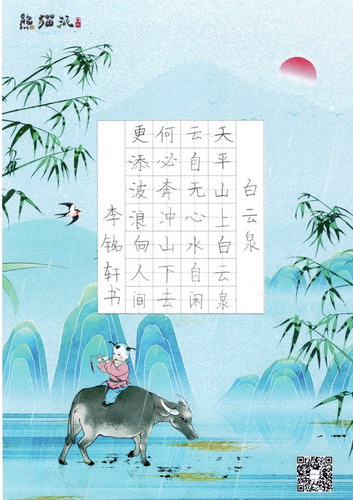 熊猫派
白云泉
天平山上白云泉
云自无心水自闲
何必奔冲山下去
更添波浪向人间
李铭轩书